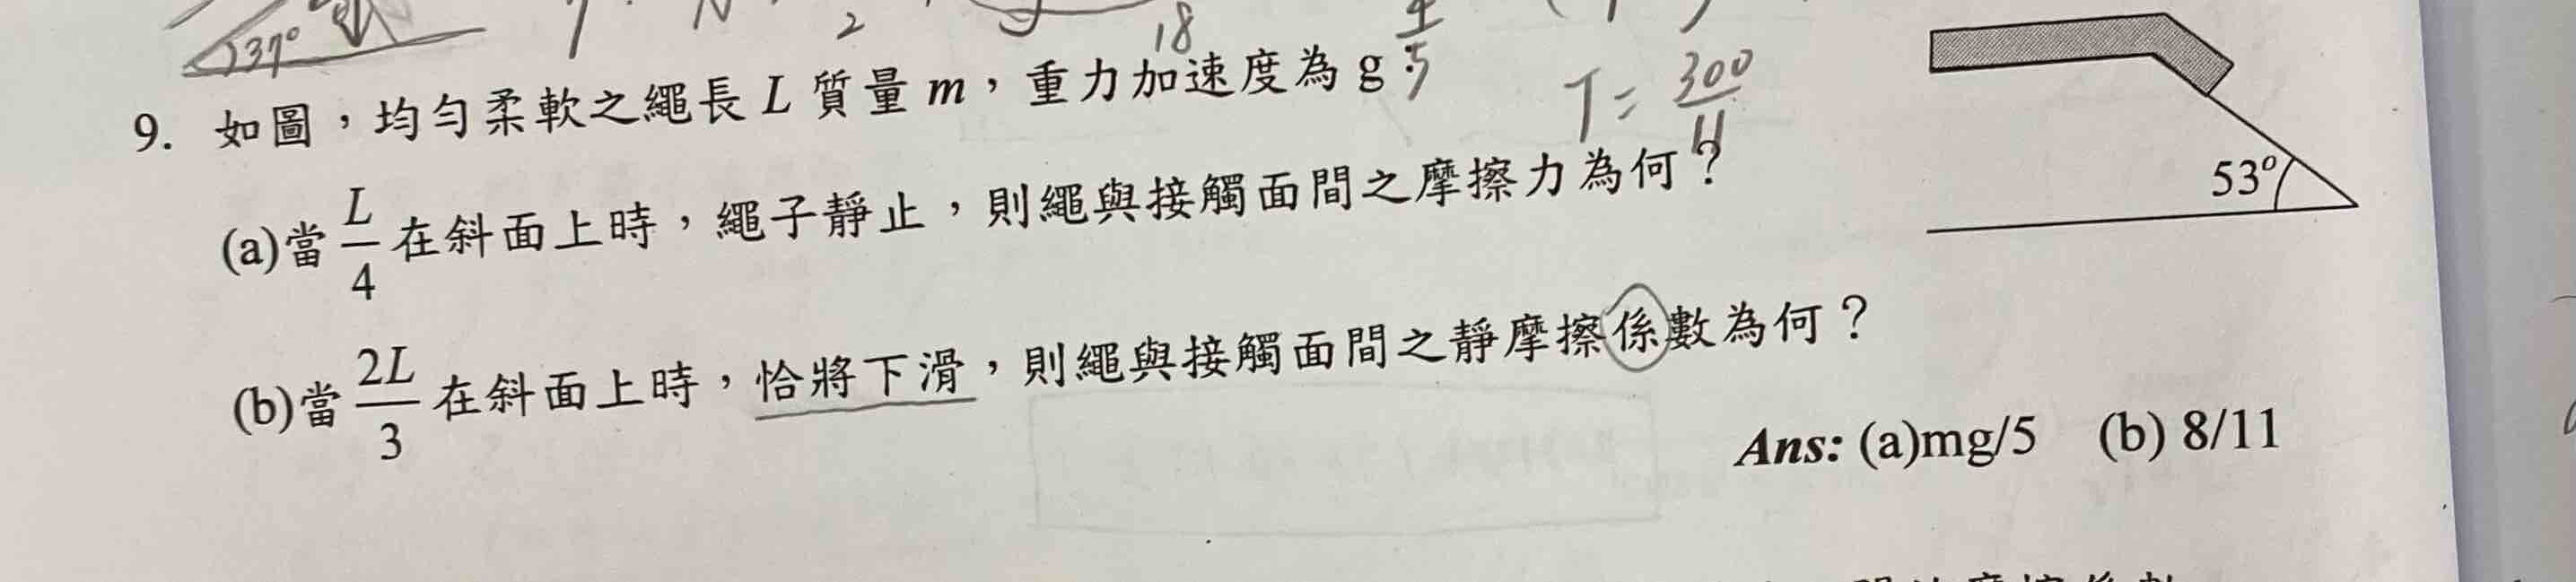 37° 2 18 4/5
9. 如圖，均勻柔軟之繩長 L 質量 m，重力加速度為 g。
T = 300/11
(a)當 L/4 在斜面上時，繩子靜止，則繩與接觸面間之摩擦力為何？
53°
(b)當 2L/3 在斜面上時，恰將下滑，則繩與接觸面間之靜摩擦係數為何？
Ans: (a)mg/5 (b) 8/11